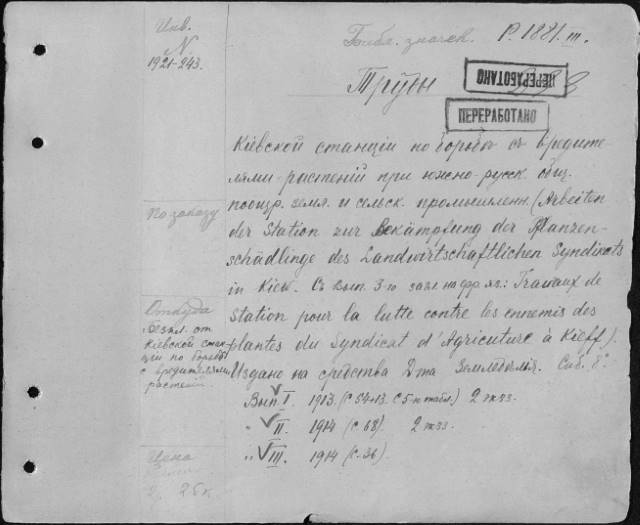 Инв.
N
1921-243.
Библ. значек. Р. 1881. III.
Труды
ПЕРЕРАБОТАНО
ПЕРЕРАБОТАНО
Кіевской станціи по борьбѣ съ вредите-
лями-растеній при южно-русск. общ.
поощр. земл. и сельск. промышленн. (Arbeiten
der Station zur Bekämpfung der Pflanzen-
schädlinge des Landwirtschaftlichen Syndicats
in Kiew. Съ вып. 3-го загл. на фр. яз.: Travaux de
Station pour la lutte contre les ennemis des
plantes du Syndicat d'Agricuture à Kieff).
Издано на средства Д-та Земледѣлія. 8°
Вып. I. 1913. (С 54+13. С 5-ю табл.) 2 экз.
" VII. 1914 (с. 68). 2 экз.
" VIII. 1914 (с. 36).
По заказу
Откуда
Безпл. от
Кіевской стан-
ціи по борьбѣ
с вредителями
растеній
Цена
25 к.